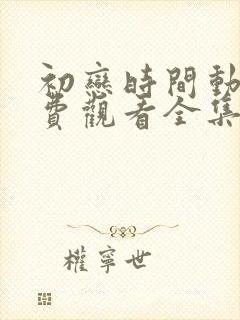 初戀時間動
費觀看全集
權寧世